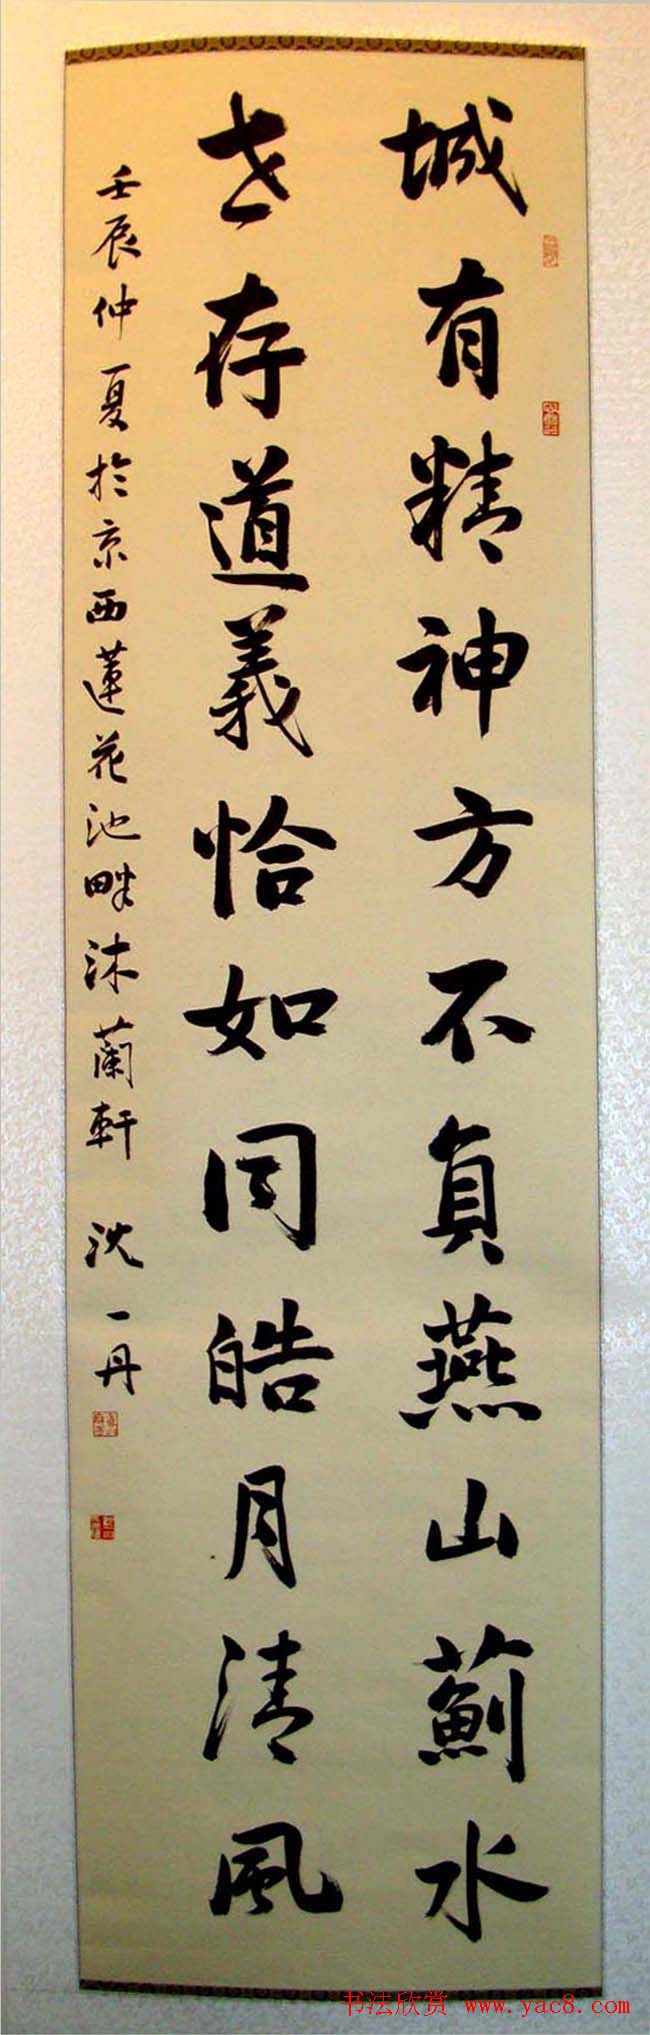 城有精神方不負燕山薊水
世存道義恰如同皓月清風
壬辰仲夏於京西蓮花池畔沐蘭軒 沈一丹
书法欣赏 www.yac8.com